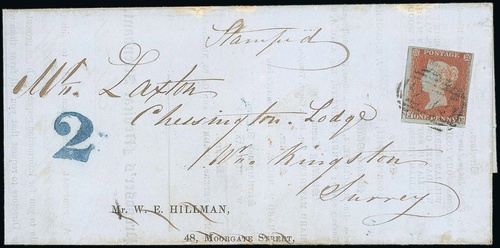 Stamped
POSTAGE
ONE PENNY
Mr. Laxton
2
Chessington Lodge
Nr. Kingston
Surrey
Mr. W. E. HILLMAN,
48, MOORGATE STREET,